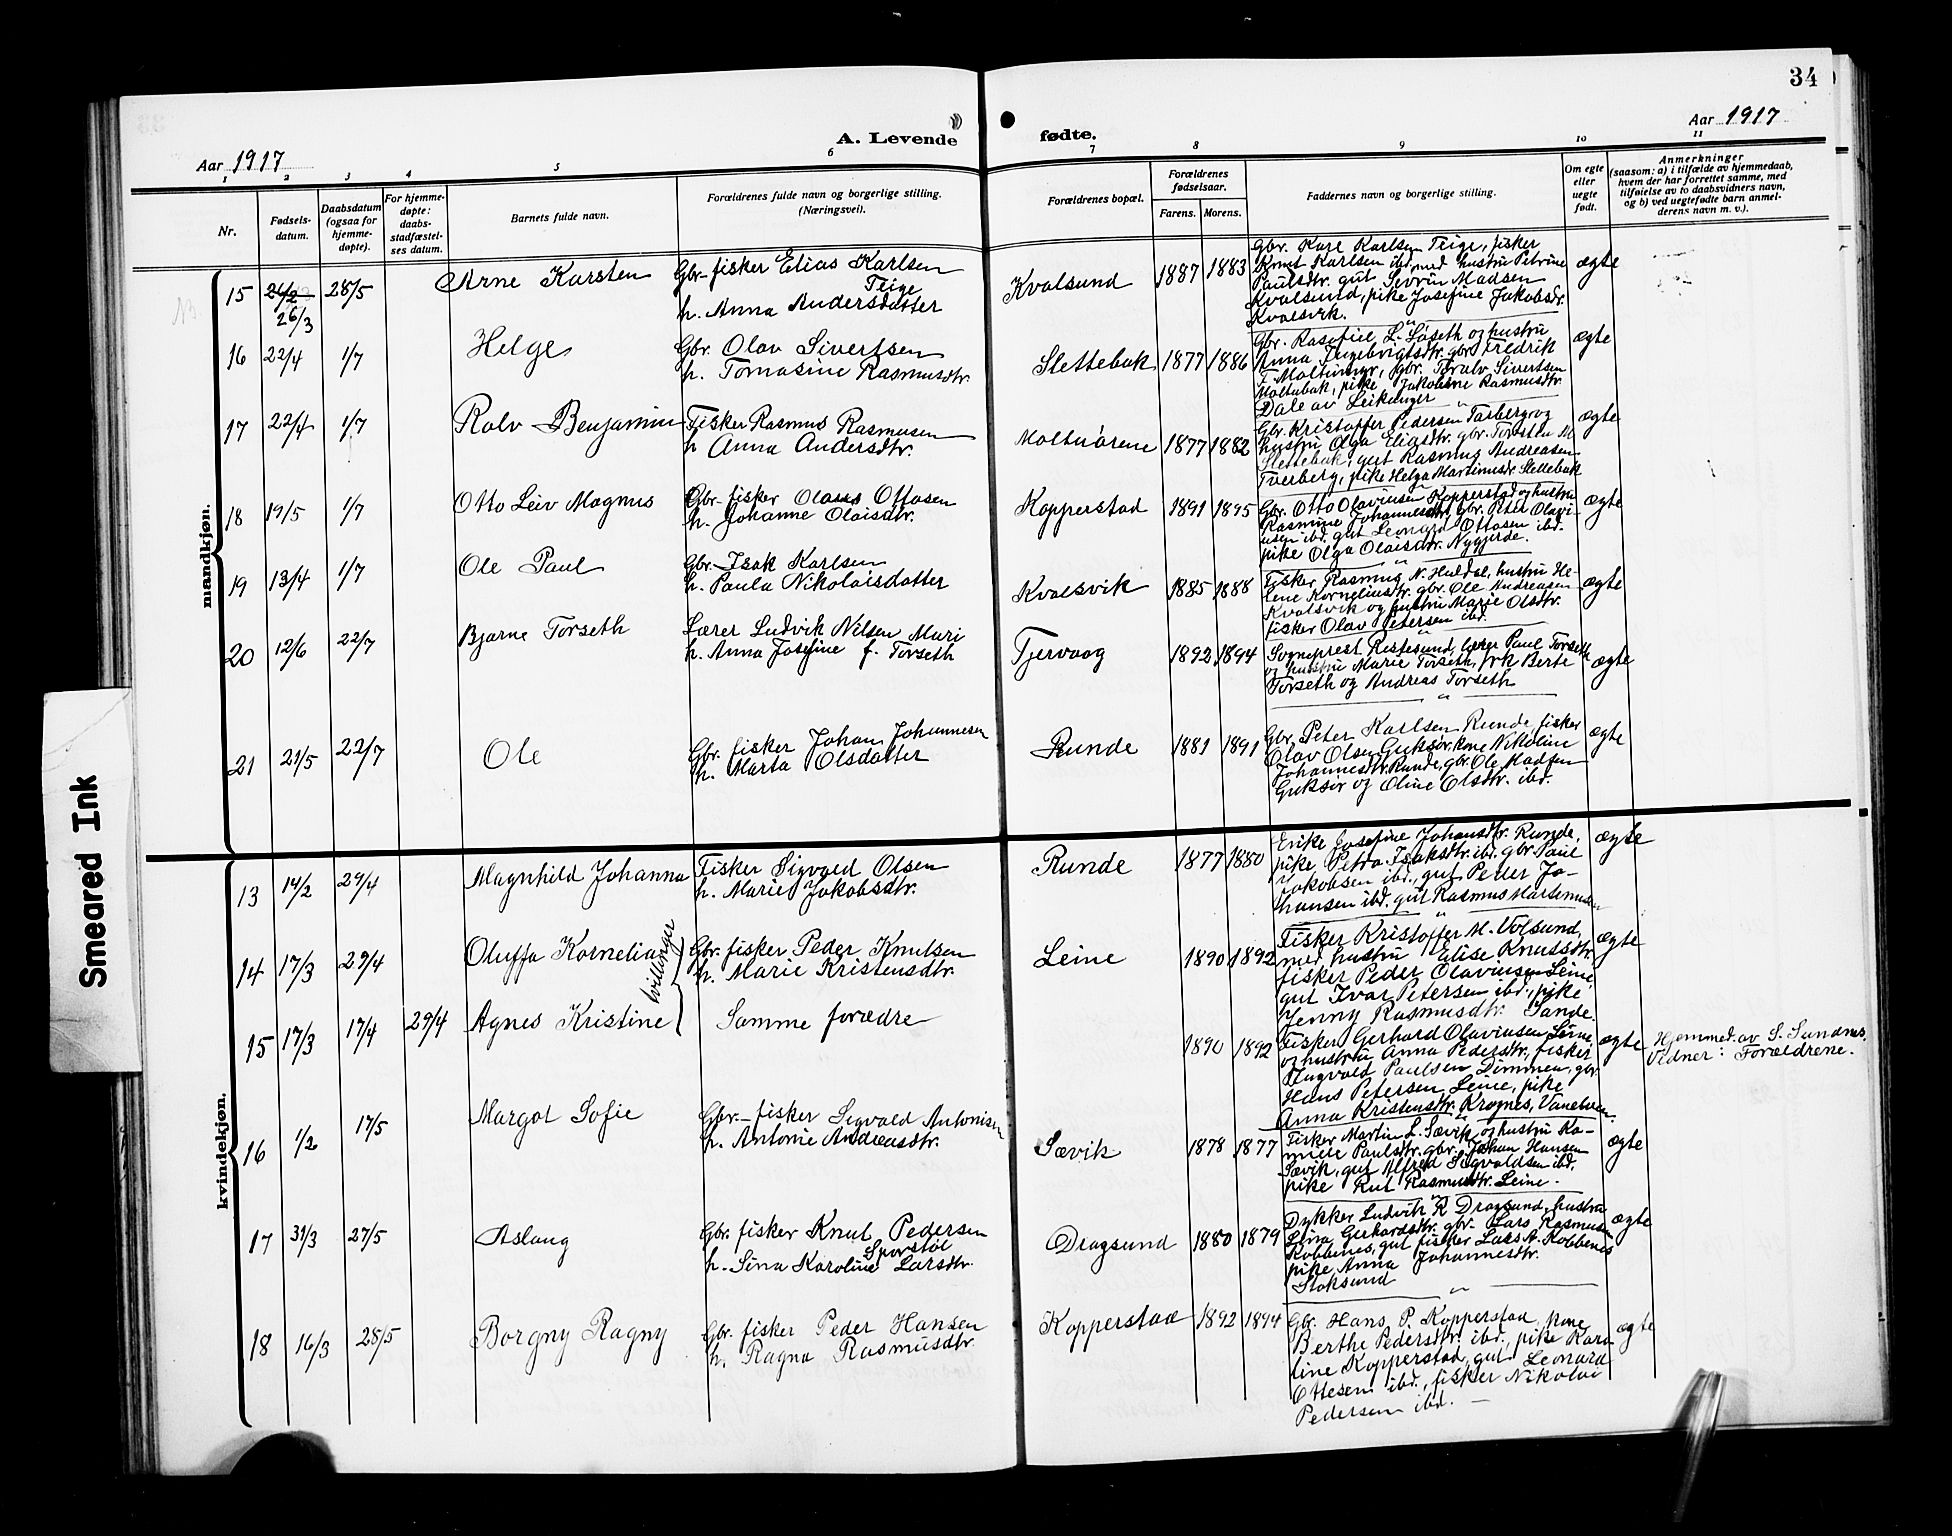 34
Aar 1917
A. Levende
fødte.
Aar 1917
1 2 3 4 5 6 7 8 9 10 11
Nr.
Fødsels-
datum.
Daabsdatum
(ogsaa for
hjemme-
døpte).
For hjemme-
døpte:
daabs-
stadfæstel-
ses datum.
Barnets fulde navn.
Forældrenes fulde navn og borgerlige stilling.
(Næringsvei).
Forældrenes bopæl.
Forældrenes
fødselsaar.
Farens. Morens.
Faddernes navn og borgerlige stilling.
Om egte
eller
uegte
født.
Anmerkninger
(saasom: a) i tilfælde av hjemmedaab,
hvem der har forrettet samme, med
tilføielse av to daabsvidners navn,
og b) ved uegtefødte barn anmel-
derens navn m. v.).
mandkjøn.
15 24/2 26/3 28/5 Arne Karsten
Gbr-fisker Elias Karlsen
Teige
h. Anna Andersdatter
Kvalsund 1887 1883
Gbr. Karl Karlsen Teige, fisker
Knut Karlsen ibd. med hustru Petrine
Paulsdtr. gut Sivrin Madsen
Kvalsund, pike Josefine Jakobsdtr.
Kvalsvik.
ægte
16 22/4 1/7 Helge
Gbr. Olav Sivertsen
h. Tomasine Rasmusdtr.
Slettebak 1877 1886
Gbr. Rasefiel L. Løseth og hustru
Anna Ingebrigtsdtr. gbr. Fredrik
F. Moltumyr, gbr. Toralv Sivertsen
Moltubak, pike Jakobine Rasmusdtr.
Dale av Leikanger
ægte
17 22/4 1/7 Rolv Benjamin
Fisker Rasmus Rasmusen
h Anna Andersdtr.
Moltuørene 1877 1882
Gbr. Kristoffer Pedersen Tarberg og
hustru Olga Eliasdtr. gbr. Torsten M.
Slettebak, gut Rasmus Andreasen
Tverberg, pike Helga Martinusdtr. Slettebak
ægte
18 19/5 1/7 Otto Leiv Magnus
Gbr-fisker Olaus Ottosen
h. Johanne Olaisdtr.
Kopperstad 1891 1895
Gbr. Otto Olavinsen Kopperstad og hustru
Rasmine Johannesdtr, gbr. Peter Olavi-
nsen ibd. gut Leonard Ottosen ibd.
pike Olga Olaisdtr. Nygjerde.
ægte
19 13/4 1/7 Ole Paul
Gbr-Isak Karlsen
h. Paula Nikolaisdatter
Kvalsvik 1885 1888
Fisker Rasmus N. Huldal, hustru He-
lene Korneliusdtr. gbr. Ole Andreasen
Kvalsvik og hustru Marie Olsdtr.
fisker Olav Petersen ibd.
ægte
20 12/6 22/7 Bjarne Torseth
Lærer Ludvik Nilsen Muri
h. Anna Josefine f. Torseth
Tjervaag 1892 1894
Sogneprest Ristesund, lærer Paul Torseth
og hustru Marie Torseth, frk Berte
Torseth og Andreas Torseth
ægte
21 21/5 22/7 Ole
Gbr. fisker Johan Johannesen
h. Marta Olsdatter
Runde 1881 1891
Gbr. Peter Karlsen Runde, fisker
Olav Olsen Guksør, kone Nikoline
Johannesdtr. Runde, gbr. Ole Madsen
Guksør og Oline Olsdtr. ibd.
ægte
kvindekjøn.
13 14/2 29/4 Magnhild Johanna
Fisker Sigvald Olsen
h. Marie Jakobsdtr.
Runde 1877 1880
Enke Josefine Johansdtr. Runde,
pike Petra Isaksdtr. ibd. gbr. Paul
Jakobsen ibd., gut Peder Jo-
hansen ibd. gut Rasmus Martinusen
ægte
14 17/3 29/4 Oluffa Kornelia
tvillinger
Gbr. fisker Peder Knutsen
h. Marie Kristensdtr.
Leine 1890 1892
Fisker Kristoffer M. Volsund,
med hustru Elise Knutsdtr.
fisker Peder Olavinsen Leine,
gut Ivar Petersen ibd., pike
Jenny Rasmusdtr. Sande.
ægte
15 17/3 17/4 29/4 Agnes Kristine
Samme forædre
1890 1892
Fisker Gerhard Olavinsen Leine
og hustru Anna Pedersdtr, fisker
Hugvald Paulsen Dimmen, gbr
Hans Petersen Leine, pike
Anna Kristensdtr. Krognes, Vanelven.
ægte
Hjemmed. av S. Sundnes.
Vidner: Forældrene.
16 1/2 17/5 Margot Sofie
Gbr-fisker Sigvald Antonisen
h. Antonie Andreasdtr.
Sævik 1878 1877
Fisker Martin L. Sævik og hustru Ka-
Paulsdtr. gbr. Johan Hansen
Sævik, gut Alfred Sigvaldsen ibd.
pike Rut Rasmusdtr. Leine.
ægte
17 31/3 27/5 Aslaug
Gbr. fisker Knut Pedersen
Sporstøl
h. Sina Karoline Larsdtr.
Dragsund 1880 1879
Dykker Ludvik R Dragsund, hustru
Lina Gerhardsdtr. gbr. Lars Rasmusen
Robbenes, gut fisker Lars A. Robbenes
pike Anna Johannesdtr.
Stoksund
ægte
18 16/3 28/5 Borgny Ragny
Gbr. fisker Peder Hansen
h. Ragna Rasmusdtr.
Kopperstad 1892 1894
Gbr. Hans P. Kopperstad, kone
Berthe Pedersdtr. ibd., pike Karo-
line Kopperstad, gut Leonard
Ottesen ibd., fisker Nikolai
Pedersen ibd. —
ægte
Smeared Ink